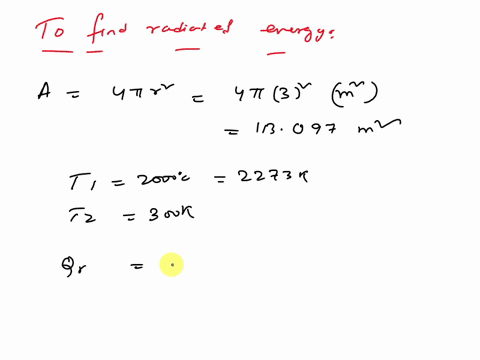 To find radiated energy:
A = 4πr² = 4π(3)² (m²)
= 113.097 m²
T1 = 2000°C = 2273K
T2 = 300K
Qr =